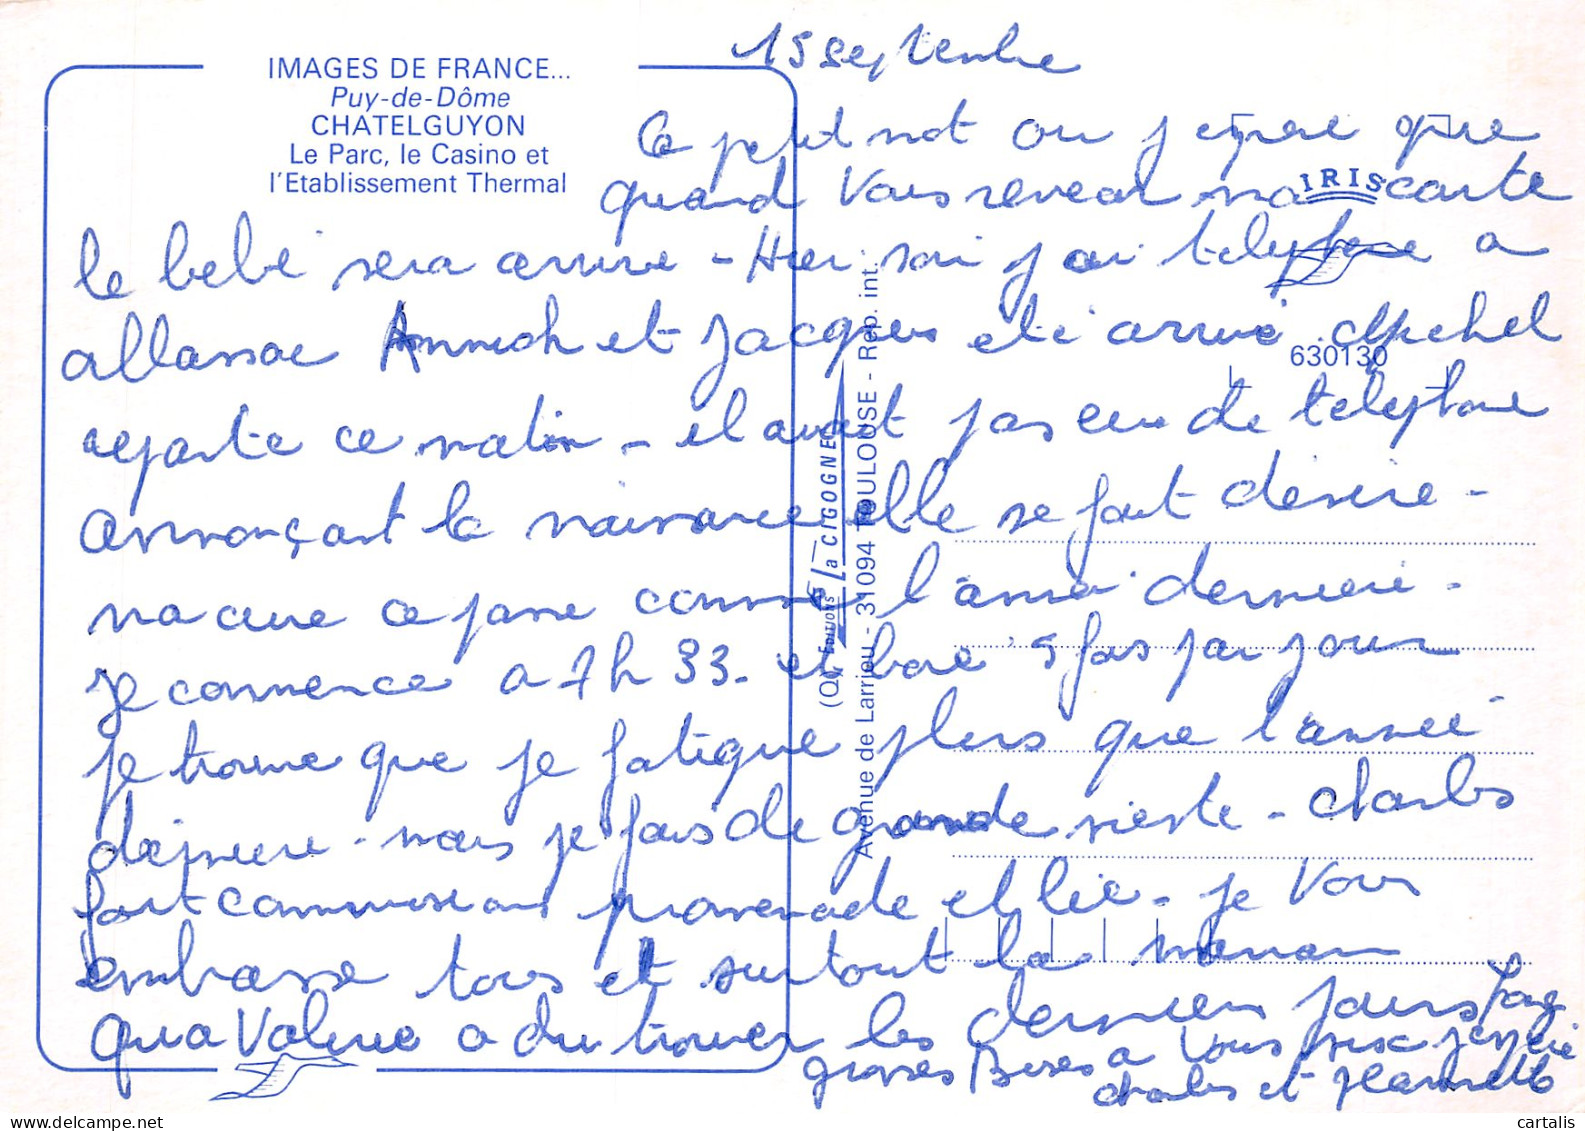 15 septembre
IMAGES DE FRANCE...
Puy-de-Dôme
CHATELGUYON
Le Parc, le Casino et
l'Etablissement Thermal
Ce petit mot ou j espere que
quand Vous recevrai ma carte
IRIS
le bebé sera arrivé - Hier soir j ai telephone a
allassac Annick et Jacques eté arrivé. Michel
630130
reparte ce matin - il avait pas eu de telephone
annonçant la naissance elle se fait désiré -
ma cure ce passe comme l'année derniere -
je commence a 7h 33. et boie 5 fois par jour
je trouve que je fatigue plus que l'année
derniere - mais je fais de grande sieste - Charles
fait commissions promenade et lit - je Vous
embrasse tous et surtout la maman
qua Valerie a du trouver les derniers jours long
grosses Bises a Vous
Charles et Jeannette
(Q) EDITIONS La CIGOGNE
Avenue de Larrieu - 31094 TOULOUSE - Rep. int.
cartalis